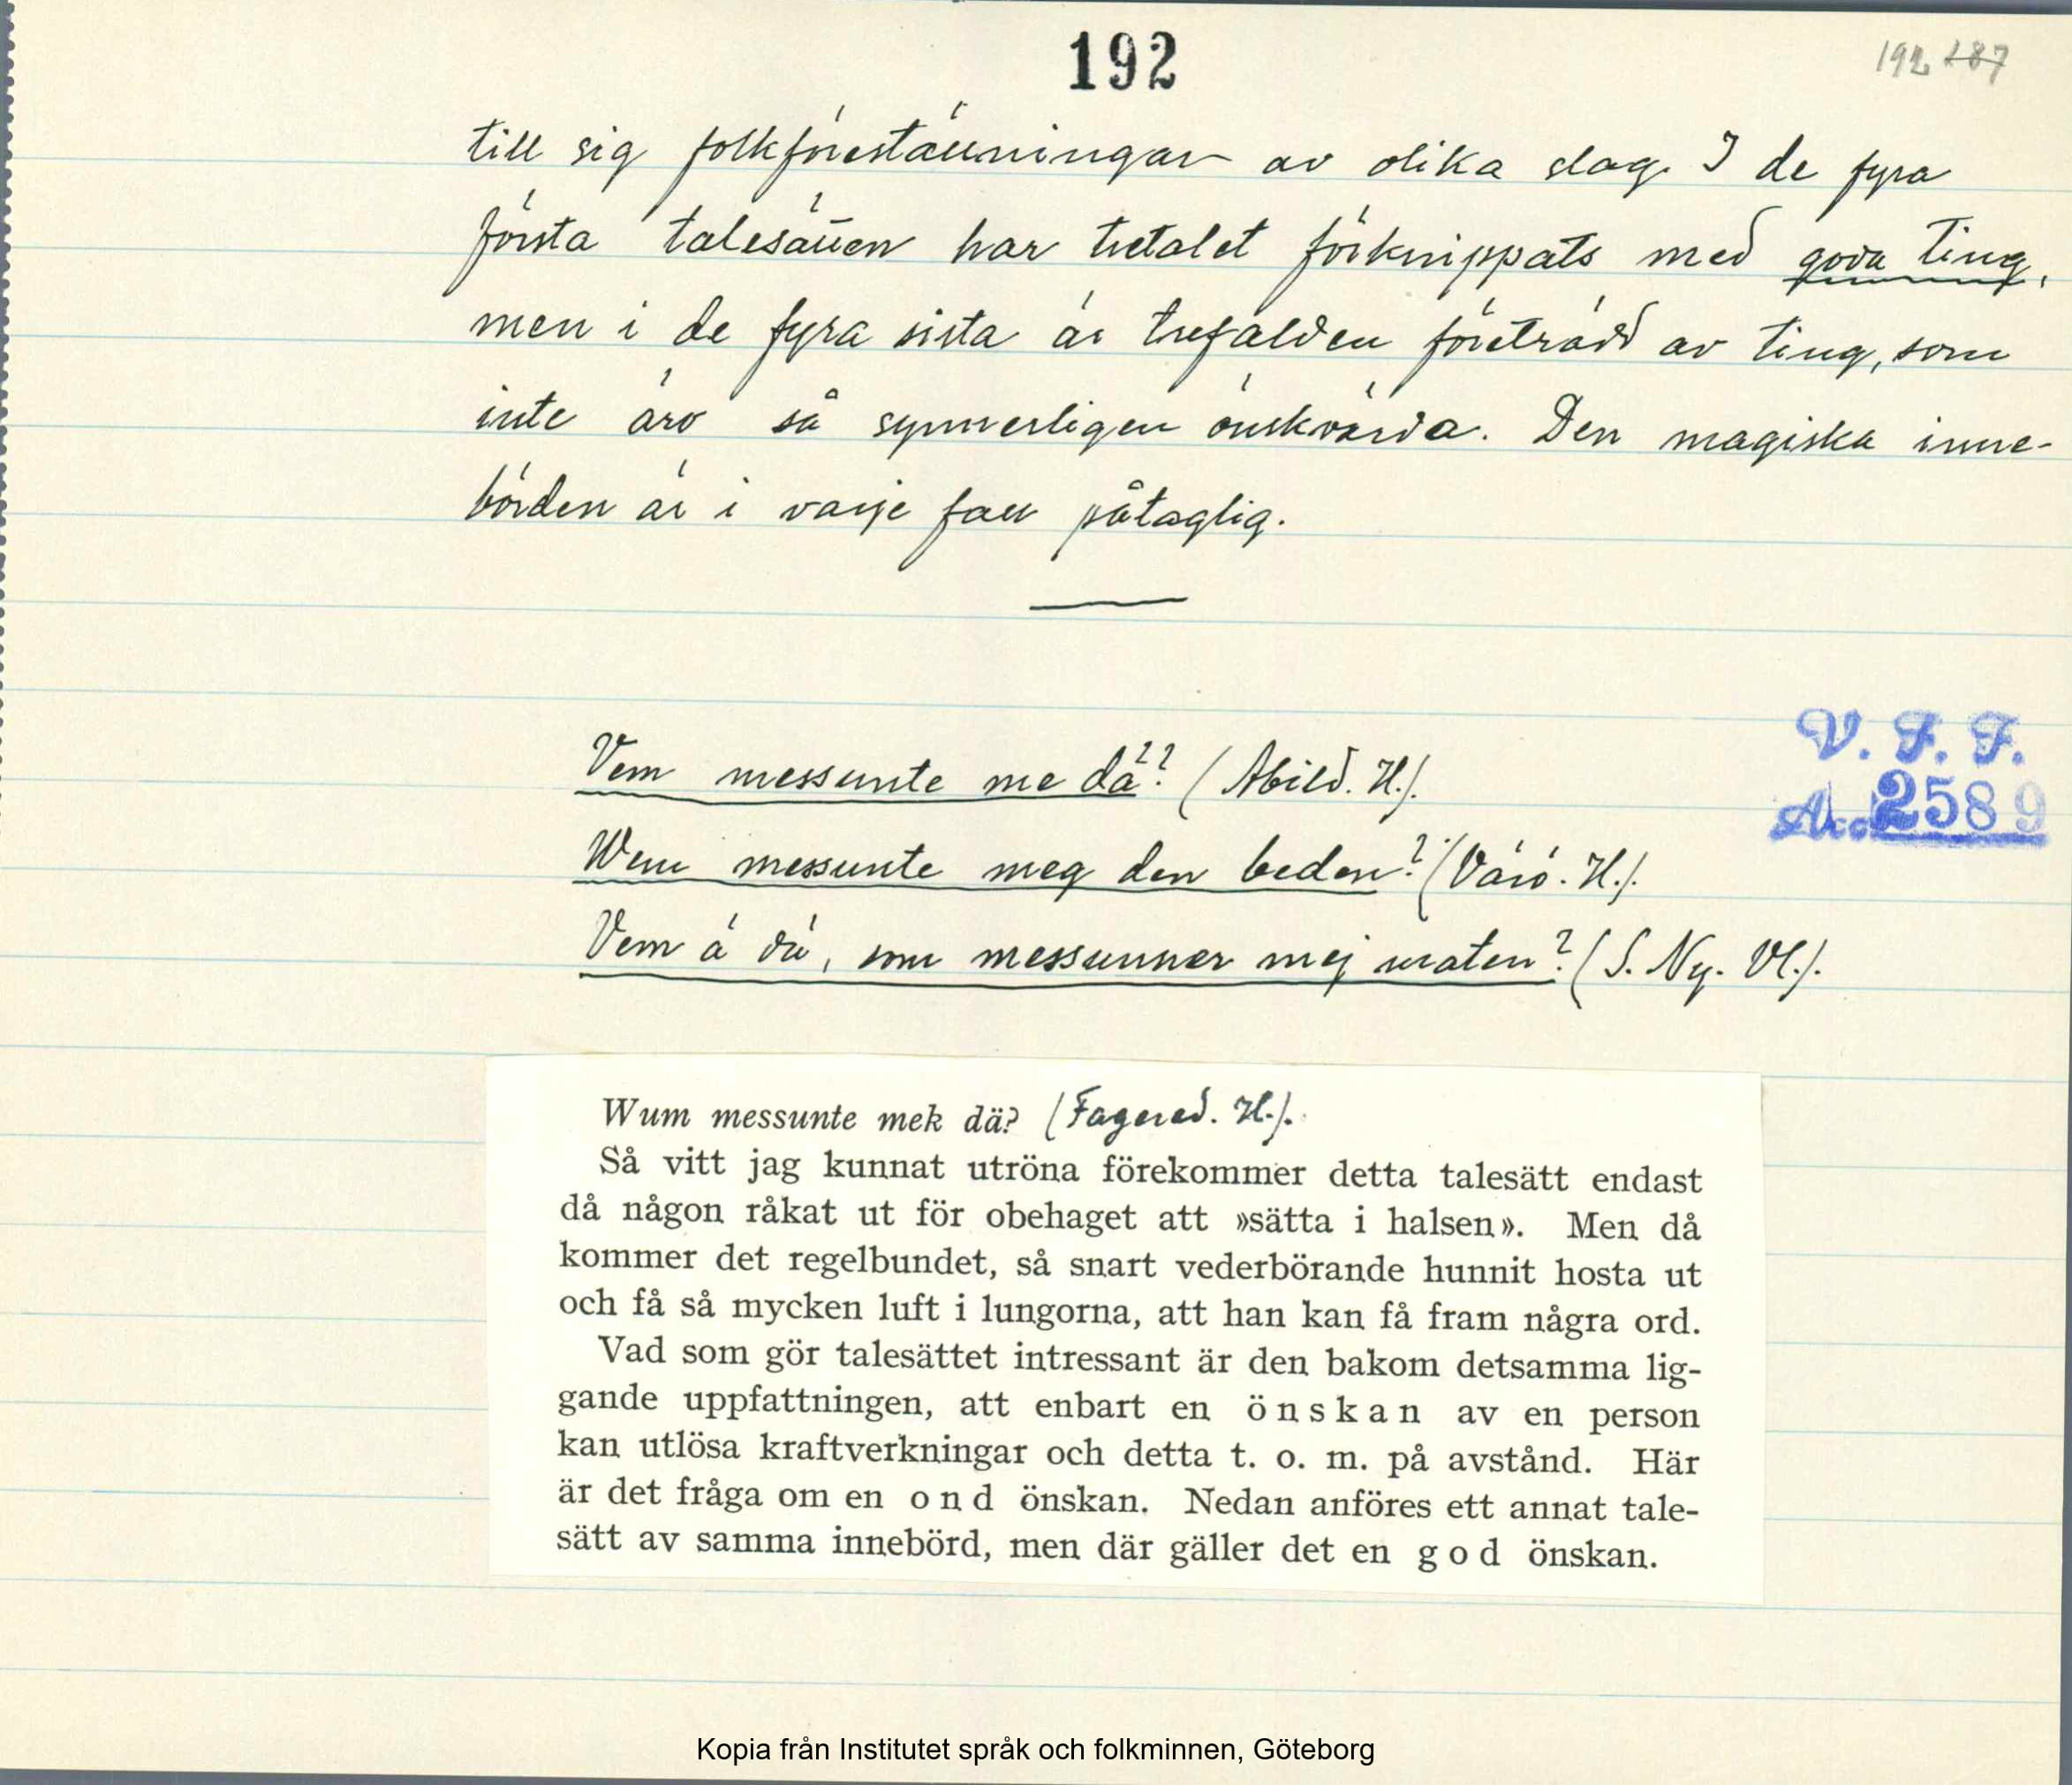 192
192 187
till sig folkföreställningar av olika slag. I de fyra
första talesätten har tretalet förknippats med goda ting,
men i de fyra sista är trefalden företrädd av ting, som
inte äro så synnerligen önskvärda. Den magiska inne-
börden är i varje fall påtaglig.
V. F. F.
Acc 2589
Vem messunte me dä? (Abild. H.).
Wem messunte meg den beden? (Värö. H.).
Vem ä dä, som messunner mej maten? (S. Ny. Vl.).
Wum messunte mek dä? (Fagered. H.).
Så vitt jag kunnat utröna förekommer detta talesätt endast
då någon råkat ut för obehaget att »sätta i halsen». Men då
kommer det regelbundet, så snart vederbörande hunnit hosta ut
och få så mycken luft i lungorna, att han kan få fram några ord.
Vad som gör talesättet intressant är den bakom detsamma lig-
gande uppfattningen, att enbart en önskan av en person
kan utlösa kraftverkningar och detta t. o. m. på avstånd. Här
är det fråga om en ond önskan. Nedan anföres ett annat tale-
sätt av samma innebörd, men där gäller det en god önskan.
Kopia från Institutet språk och folkminnen, Göteborg